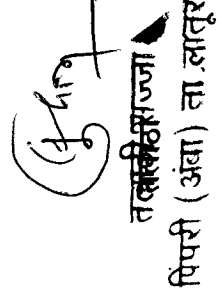 तलाठी सज्जा
पिंपरी (अंबा) ता.लातूर